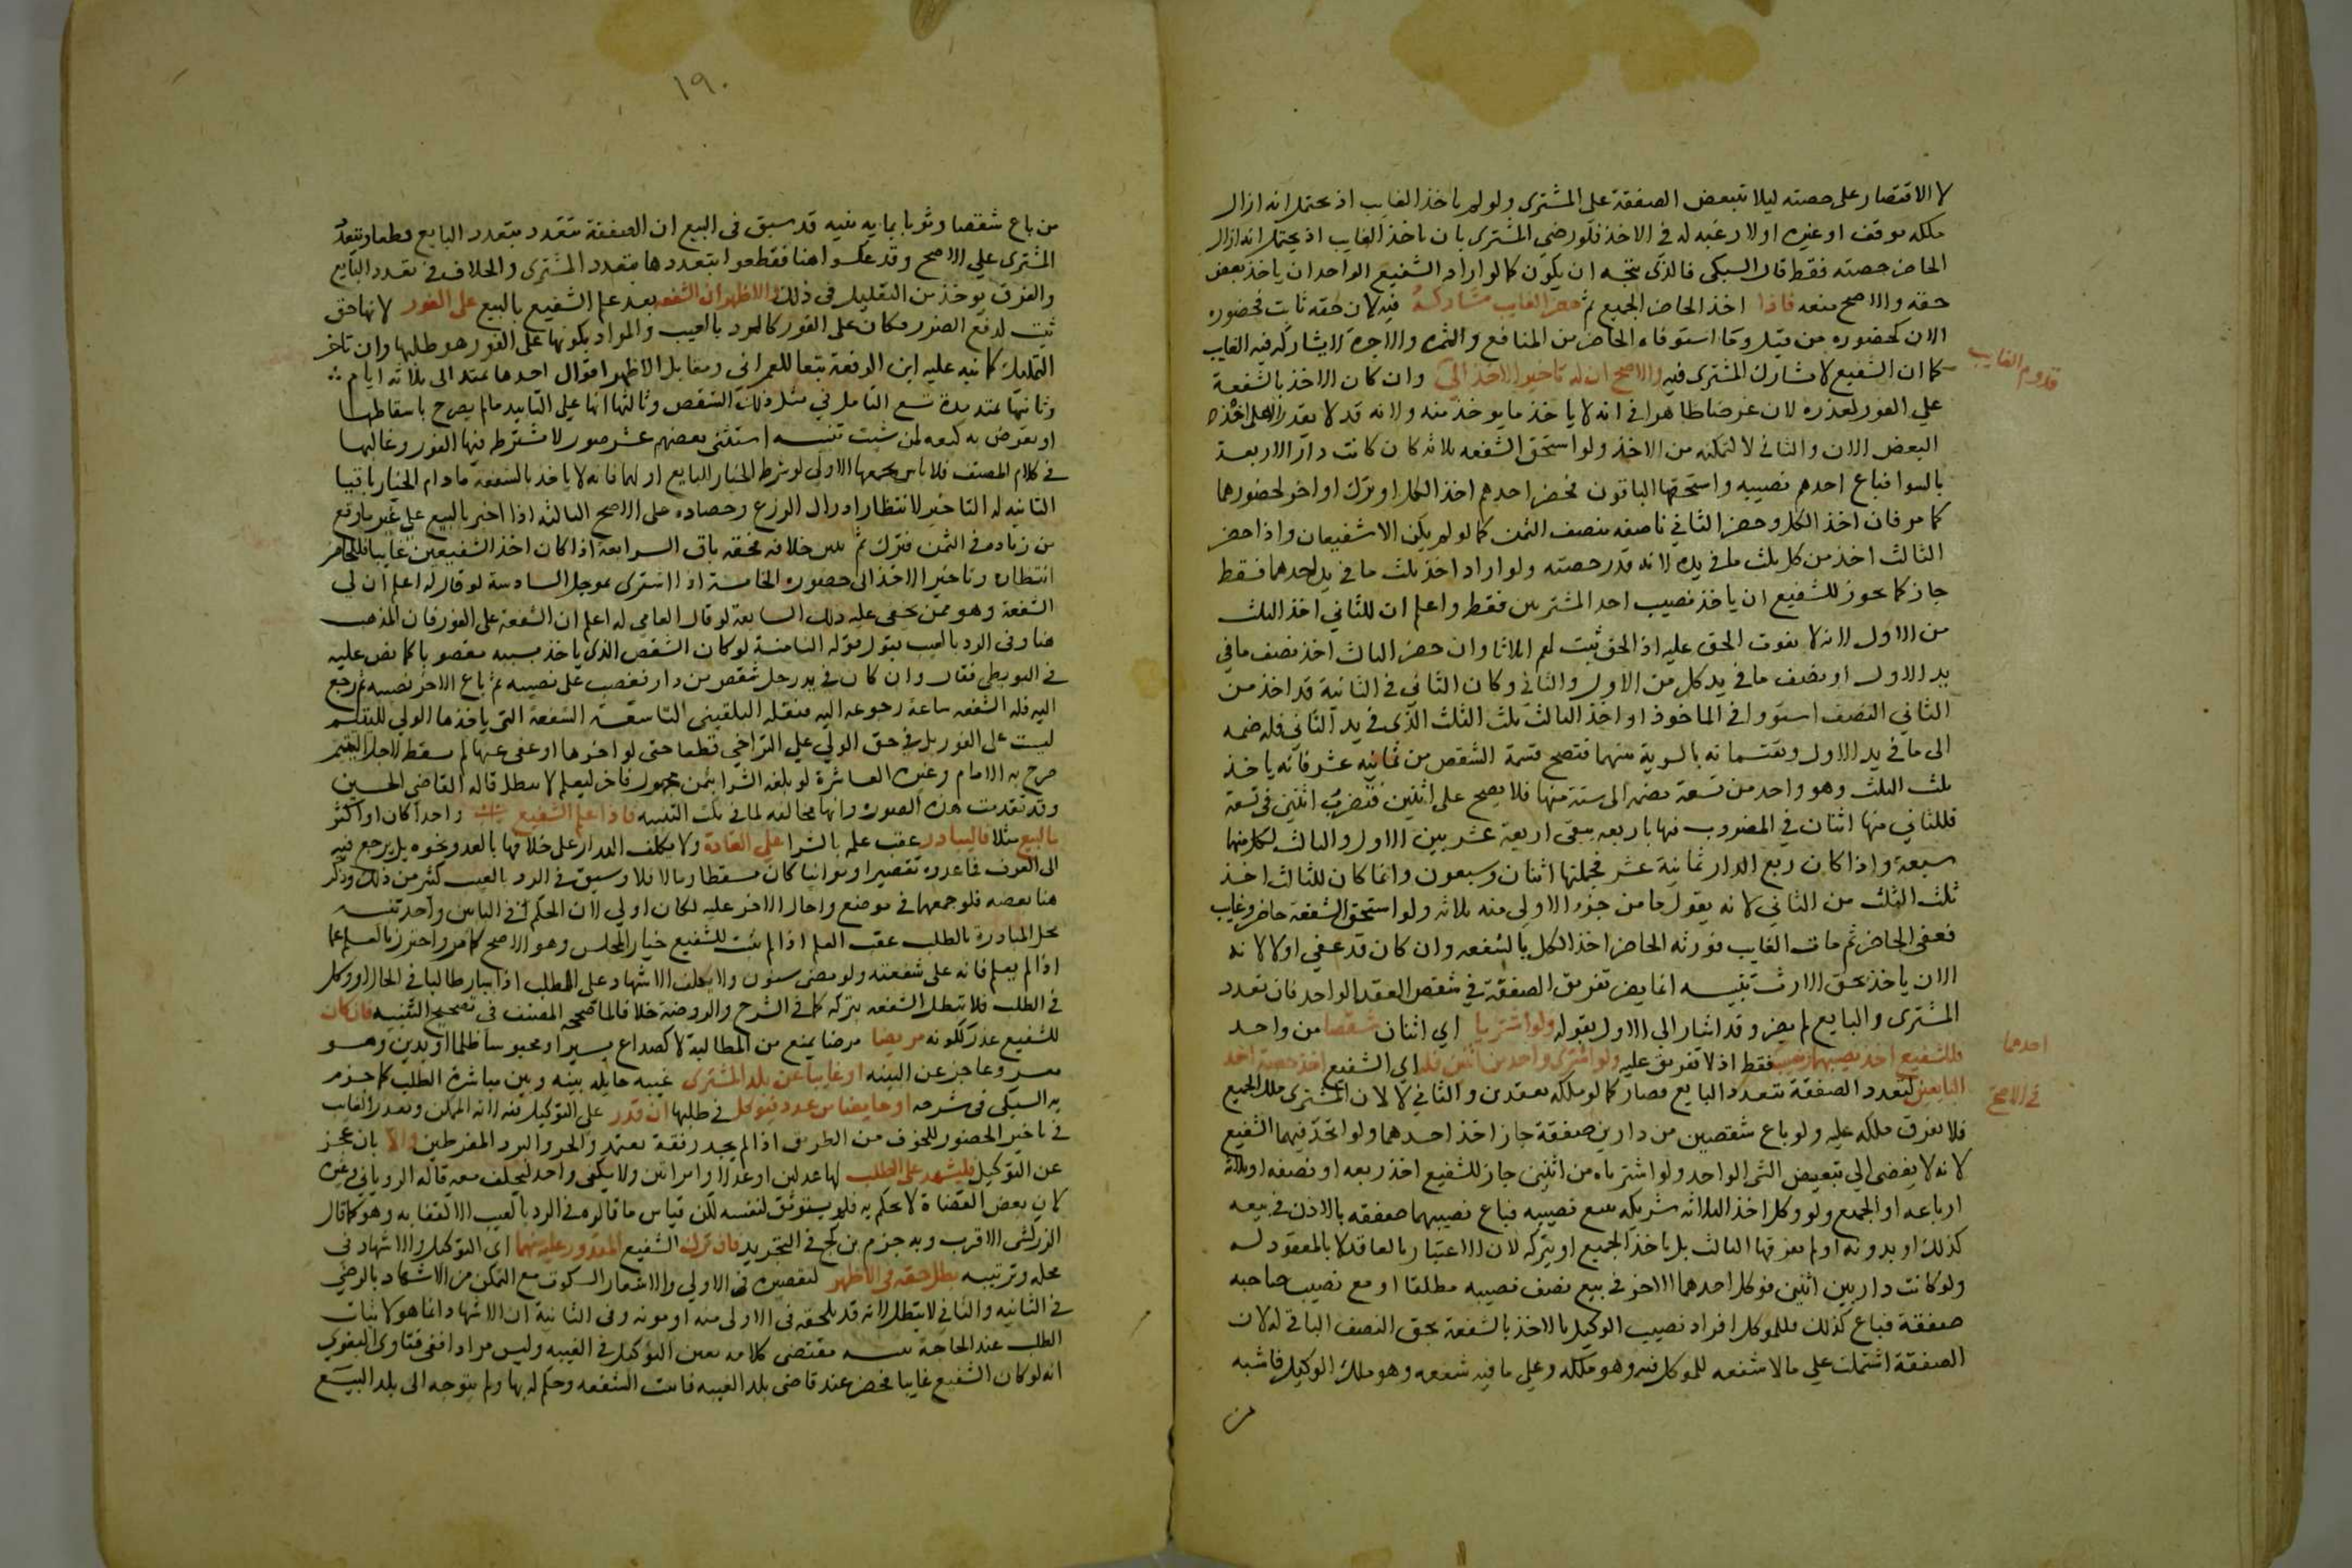 لا الاقتصار على حصته ليلا تتبعض الصفقة على المشترى ولو لم ياخذ الغايب اذ يحتمل انه ازال
ملكه بوقف او غيره اولا رغبه له فى الاخذ فلو رضي المشترى بان ياخذ الغايب اذ يحتمل انه ازال
الحاضر حصته فقط قال السبكى فالذى يتجه ان يكون كما لو اراد الشفيع الواحد ان ياخذ بعض
حقه والاصح منعه فاذا اخذ الحاضر الجميع ثم حضر الغايب شاركه فيه لان حقه ثابت فحضوره
الان كحضوره من قبل وما استوفاه الحاضر من المنافع والثمره والاجرة لا يشاركه فيه الغايب
كما ان الشفيع لا يشارك المشترى فيه والاصح ان له تاخير الاخذ الى وان كان الاخذ بالشفعة
قدوم الغايب
على الفور لعذره لان غرضا ظاهرا فى انه لا ياخذ ما يوخذ منه ولانه قد لا يقدر الا على اخذه
البعض الان والثانى لا لتمكنه من الاخذ ولو استحق الشفعه ثلاثه كان كانت دار لاربعة
بالسوا فباع احدهم نصيبه واستحقها الباقون فحضر احدهم اخذ الكل او ترك او اخر لحضورهما
كما مر فان اخذ الكل وحضر الثانى ناصفه بنصف الثمن كما لو لم يكن الا شفيعان واذا حضر
الثالث اخذ من كل ثلث ما فى يده لانه قدر حصته ولو اراد اخذ ثلث ما فى يد احدهما فقط
جاز كما يجوز للشفيع ان ياخذ نصيب احد المشتريين فقط واعلم ان للثاني اخذ الثلث
من الاول لانه لا يفوت الحق عليه اذ الحق ثبت لهم اثلاثا وان حضر الثالث اخذ نصف ما في
يد الاول او نصف ما فى يد كل من الاول والثانى وكان الثانى فى الثانية قد اخذ من
الثاني النصف استووا فى الماخوذ او اخذ الثالث ثلث الثلث الذى فى يد الثاني فله ضمه
الى ما فى يد الاول ويقتسمانه بالسوية بينهما فتصح قسمة الشقص من ثمانيه عشر فانه ياخذ
ثلث الثلث وهو واحد من تسعة يضمه الى ستة منها فلا يصح على اثنين فتضرب اثنين فى تسعة
فللثاني منها اثنان في المضروب فيها باربعه يبقى اربعة عشر بين الاول والثالث لكل منهما
سبعة واذا كان ربع الدار ثمانية عشر فجملتها اثنان وسبعون وانما كان للثالث اخذ
ثلث الثلث من الثاني لانه يقول ما من جزء الا ولى منه ثلاثه ولو استحق الشفعة حاضر وغايب
فعفى الحاضر ثم مات الغايب فورثه الحاضر اخذ الكل بالشفعه وان كان قد عفي اولا لانه
الان ياخذ بحق الارث تنبيه انما يضر تفريق الصفقة في شقص العقد الواحد فان تعدد
المشترى والبايع لم يضر وقد اشار الى الاول بقوله ولو اشتريا اي اثنان شقصا من واحد
فللشفيع اخذ نصيبهما ونصيب فقط اذ لا تفريق عليه ولو اشترى واحد من اثنين فله اي الشفيع اخذ حصة احد
احدهما
البايعين لتعدد الصفقة بتعدد البايع فصار كما لو ملكه بعقدين والثاني لا لان المشترى ملك الجميع
في الاصح
فلا يفرق ملكه عليه ولو باع شقصين من دارين صفقة جاز اخذ احدهما ولو اتحد فيهما الشفيع
لانه لا يفضى الى تبعيض الشى الواحد ولو اشترياه من اثنين جاز للشفيع اخذ ربعه او نصفه او ثلاثة
ارباعه او الجميع ولو وكل احد الثلاثه شريكه ببيع نصيبه فباع نصيبهما صفقه بالاذن فى بيعه
كذلك او بدونه لم يفرقها الثالث بل ياخذ الجميع او يتركه لان الاعتبار بالعاقد لا بالمعقود له
ولو كانت دار بين اثنين فوكل احدهما الاخر فى بيع نصف نصيبه مطلقا او مع نصيب صاحبه
صفقة فباع كذلك فللموكل افراد نصيب الوكيل بالاخذ بالشفعة بحق النصف الباقى له لان
الصفقة اشتملت على ما لا شفعه للموكل فيه وهو ملكه وعلى ما فيه شفعه وهو ملك الوكيل فاشبه
من
١٩٠
من باع شقصا وثوبا بمايه فيه قد سبق فى البيع ان الصفقة تتعدد بتعدد البايع قطعا وبتعدد
المشترى على الاصح وقد عكسوا هنا فقطعوا بتعددها بتعدد المشترى والخلاف فى تعدد البايع
والفرق يوخذ من التعليل فى ذلك والاظهر ان الشفعه بعد علم الشفيع بالبيع على الفور لانها حق
ثبت لدفع الضرر فكان على الفور كالرد بالعيب والمراد بكونها على الفور هو طلبها وان تاخر
التمليك كما نبه عليه ابن الرفعة تبعا للعمرانى ومقابل الاظهر اقوال احدها تمتد الى ثلاثه ايام
وثانيها تمتد مدة تسع التامل فى مثل ذلك الشقص وثالثها انها على التابيد ما لم يصرح باسقاطها
او يعرض به كبعه لمن شيت تنبيه استثنى بعضهم عشر صور لا يشترط فيها الفور وغالبها
فى كلام المصنف فلا باس بجمعها الاولى لو شرط الخيار للبايع او لهما فانه لا ياخذ بالشفعة ما دام الخيار باقيا
الثانيه له التاخير لانتظار ادراك الزرع وحصاده على الاصح الثالثه اذا اخبر بالبيع على غير ما وقع
من زيادة فى الثمن فترك ثم تبين خلافه فحقه باق الرابعة اذا كان احد الشفيعين غايبا فللحاضر
انتظاره وتاخير الاخذ الى حضوره الخامسة اذا اشترى بموجل السادسة لو قال لم اعلم ان لي
الشفعة وهو ممن يخفى عليه ذلك السابعة لو قال العامى لم اعلم ان الشفعة على الفور فان المذهب
هنا وفى الرد بالعيب قبول قوله الثامنة لو كان الشقص الذى ياخذ بسببه مغصوبا كما نص عليه
فى البويطى فقال وان كان فى يد رجل شقص من دار فغصب على نصيبه ثم باع الاخر نصيبه ثم رجع
اليه فله الشفعه ساعة رجوعه اليه فنقله البلقينى التاسعة الشفعة التى ياخذها الولي لليتيم
ليست على الفور بل فى حق الولي على التراخي قطعا حتى لو اخرها او عفى عنها لم يسقط لاجل اليتيم
صرح به الامام وغيره العاشرة لو بلغه الشرا بثمن مجهول فاخر ليعلم لا يبطل قاله القاضي الحسين
وقد تقدمت هذه الصوره وانها مخالفه لما فى نكت التنبيه فاذا علم الشفيع واحدا كان او اكثر
بالبيع مثلا فليبادر عقب علمه بالشرا على العادة ولا يكلف البدار على خلافها بالعدو ونحوه بل يرجع فيه
الى العرف فما عدوه تقصيرا وتوانيا كان مسقطا وما لا فلا وسبق فى الرد بالعيب كثير من ذلك وذكر
هنا بعضه فلو جمعها فى موضع واحال الاخر عليه لكان اولى لان الحكم فى البابين واحد تنبيه
محل المبادرة بالطلب عقب العلم اذا لم يثبت للشفيع خيار المجلس وهو الاصح كما مر واحترز بالعلم عما
اذا لم يعلم فانه على شفعته ولو مضى سنون ولا يكلف الاشهاد على الطلب اذا سار طالبا فى الحال او وكل
فى الطلب فلا تبطل الشفعه بتركه كما فى الشرح والروضة خلافا لما صححه المصنف فى تصحيح التنبيه فان كان
للشفيع عذر ككونه مريضا مرضا يمنع من المطالبة لا كصداع يسير او محبوسا ظلما او بدين وهو
معسر وعاجز عن البينه او غايبا عن بلد المشترى غيبه حايله بينه وبين مباشرة الطلب كما جزم
به السبكى فى شرحه او خايفا من عدو فيوكل فى طلبها ان قدر على التوكيل فيه لانه الممكن ويعذر الغايب
فى تاخير الحضور للخوف من الطريق اذا لم يجد رفقة تعتمد والحر والبرد المفرطين والا بان عجز
عن التوكيل فليشهد على الطلب لها عدلين او عدلا وامراتين ولا يكفى واحد ليحلف معه قاله الروياني وغيره
لان بعض القضاة لا يحكم به فلم يستوثق لنفسه لكن قياس ما قالوه فى الرد بالعيب الاكتفا به وهو كما قال
الزركشى الاقرب وبه جزم بن كج فى التجريد فان ترك الشفيع المقدور عليه منهما اى التوكيل والاشهاد فى
محله وترتيبه بطل حقه فى الاظهر لتقصيره فى الاولى والاشعار السكوت مع التمكن من الاشهاد بالرضى
فى الثانيه والثانى لا يبطل لانه قد يلحقه فى الاولى منه او مونه وفى الثانية ان الاشهاد انما هو لاثبات
الطلب عند الحاجة تنبيه مقتضى كلامه تعين التوكيل فى الغيبه وليس مرادا ففى فتاوى البغوي
انه لو كان الشفيع غايبا فحضر عند قاضى بلد الغيبه فاثبت الشفعه وحكم له بها ولم يتوجه الى بلد البيع